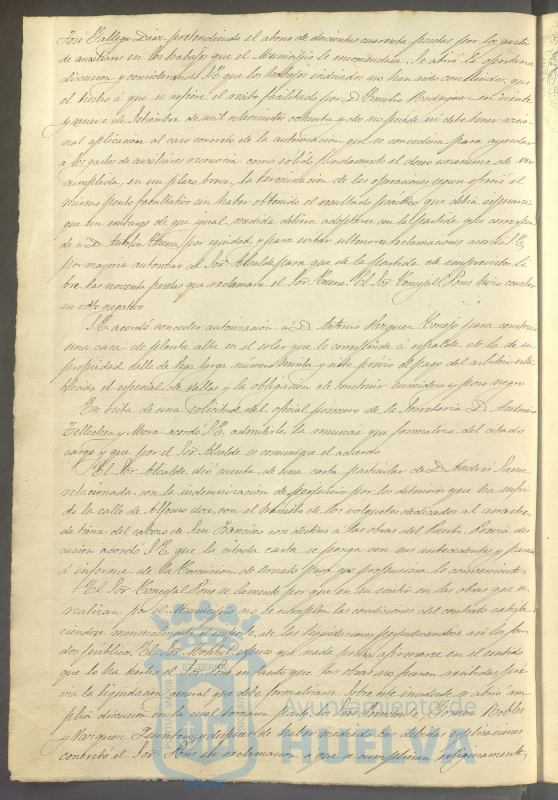 José Gallego Díaz pretendiendo el abono de doscientas cuarenta pesetas por los gastos
de auxiliares en los trabajos que el Municipio le encomendara. Se abrió la oportuna
discusion y considerando S.E. que los trabajos indicados no han sido concluidos, que
el hecho á que se refiere el recibo facilitado por D. Emilio Rodriguez en veinte
y nueve de Setiembre de mil ochocientos ochenta y dos no puede ni debe tener racio-
nal aplicacion al caso concreto de la autorizacion que se concediera para ayudar
á los gastos de auxiliares reconocia como sólido fundamento el deseo unanime de ver
cumplida, en un plazo breve, la terminacion de las operaciones segun ofreció el
mismo perito facultativo sin haber obtenido el resultado práctico que debia esperarse
que sin embargo de que igual medida debiera adoptarse en la partida que correspon-
de á D. Antolin por equidad, y para evitar ulteriores reclamaciones acordó S.E.
por mayoría autorizar al Sor. Alcalde para que de la partida de imprevistos li-
bre las noventa pesetas que reclamara el Sor. El Sor. Concejal Pons hizo constar
su voto negativo
S.E. acordó conceder autorizacion á D. Antonio Vazquez Conejo para construir
una casa de planta alta en el solar que le corresponde á espaldas de la de su
propiedad calle de Vega larga número treinta y siete, prévio el pago del arbitrio esta-
blecido el especial de vallas y la obligacion de construir sumidero y pozo negro
En vista de una solicitud del oficial primero de la Secretaría D. Antonio
y Mora acordó S.E. admitirle la renuncia que formaliza del citado
cargo y que por el Sor. Alcalde se comunique el acuerdo
El Sor. Alcalde dió cuenta de una carta particular de D. Andrés
relacionada con la indemnizacion de perjuicios por los deterioros que ha sufri-
do la calle de Alfonso doce, con el tránsito de los volquetes dedicados al arrastre
de tierra del cabezo de San Francisco con destino á las obras del Puerto. Prévia dis-
cusion acordó S.E. que la citada carta se ponga con sus antecedentes y pase
á informe de la Comision de Ornato para que proponga lo conveniente
El Sor. Concejal Pons se lamentó porque en su sentir en las obras que se
realizan por el Municipio no se cumplen las condiciones del contrato satisfa-
ciendose mensualmente el importe de las liquidaciones perjudicandose asi los fon-
dos públicos. El Sor. expuso que nada podia afirmarse en el sentido
que lo ha hecho el Sor. Pons en tanto que las obras no fueran recibidas pré-
via la liquidacion general que debe formalizarse. Sobre este incidente se abrió am-
plia discusion en la cual tomaron parte los Sres. Presidente, Gomez Robles
y Vazquez y despues de haber mediado las debidas esplicaciones
concretó el Sor. Pons su reclamacion á que se cumplieran rigorosamente,
Ayuntamiento de
HUELVA